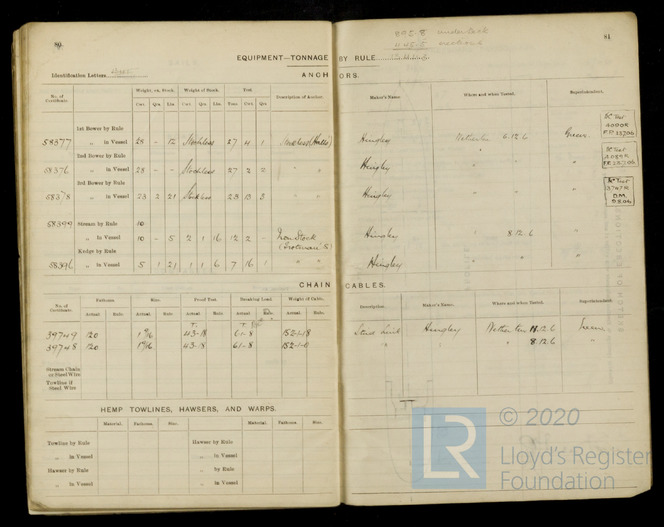 80
81
892·8 underdeck
EQUIPMENT—TONNAGE BY RULE
Identification Letters
ANCHORS.
No. of Certificate. Weight, ex. Stock. Weight of Stock. Test Description of Anchor. Maker's Name Where and when Tested. Superintendent.
Cwt. Qrs. Lbs. Cwt. Qrs. Lbs. Tons. Cwt. Qrs.
1st Bower by Rule
58377 „ in Vessel 28 - 12 Stockless 27 4 1 Hingley Netherton 6.12.6 Green
2nd Bower by Rule
58376 „ in Vessel 28 - - Stockless 27 2 2 " " Hingley " " "
3rd Bower by Rule
58378 „ in Vessel 23 2 21 Stockless 23 13 3 " " Hingley " " "
58399 Stream by Rule 10
„ in Vessel 10 - 5 2 1 16 12 2 - Iron Stock Hingley " 8.12.6 "
Kedge by Rule
58396 „ in Vessel 5 1 21 1 1 6 7 16 1 " Hingley " " "
CHAIN CABLES.
No. of Certificate. Fathoms. Size. Proof Test. Breaking Load Weight of Cable. Description. Maker's Name. Where and when Tested. Superintendent.
Actual Rule. Actual Rule. Actual Rule. Actual Rule. Actual Rule.
39749 120 1 9/16 43-18 61-8 152-1-18 Stud Link Hingley Netherton 18.12.6 Green
39748 120 1 9/16 43-18 61-8 152-1-0 " " " 8.12.6 "
Stream Chain or Steel Wire
Towline if Steel Wire
HEMP TOWLINES, HAWSERS, AND WARPS.
Material. Fathoms. Size. Material. Fathoms. Size.
Towline by Rule Hawser by Rule
„ in Vessel „ in Vessel
Hawser by Rule „ by Rule
„ in Vessel „ in Vessel
LR
© 2020
Lloyd's Register
Foundation